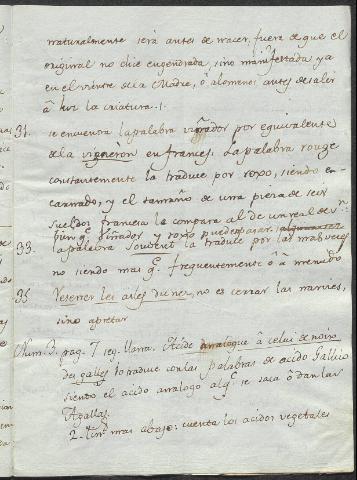 naturalmente será antes de nacer, fuera de que el
original no dice engendrada, sino manifestada ya
en el vientre de la Madre, ó alomenos antes de salir
á luz la criatura.
31. se encuentra la palabra viñador por equivalente
de la vigneron en frances. La palabra rouge
constantemente la traduce por roxo, siendo en-
carnado, y el tamaño de una pieza de seis
sueldos francesa la compara al de un real de
viñador y roxo puede pasar
33. la palabra souvent la traduce por las mas veces
no siendo mas q.e frequentemente ó á menudo
35. resserrer les ailes du nez, no es cerrar las narices,
sino apretar
Num. 3. pag. 7 seg. llana. Acide analogue à celui de noix
de galles lo traduce con las palabras de acido Gallico
siento el acido analogo al q.e se saca ó dan las
Agallas.
2. lin.s mas abajo: cuenta los acidos vegetales